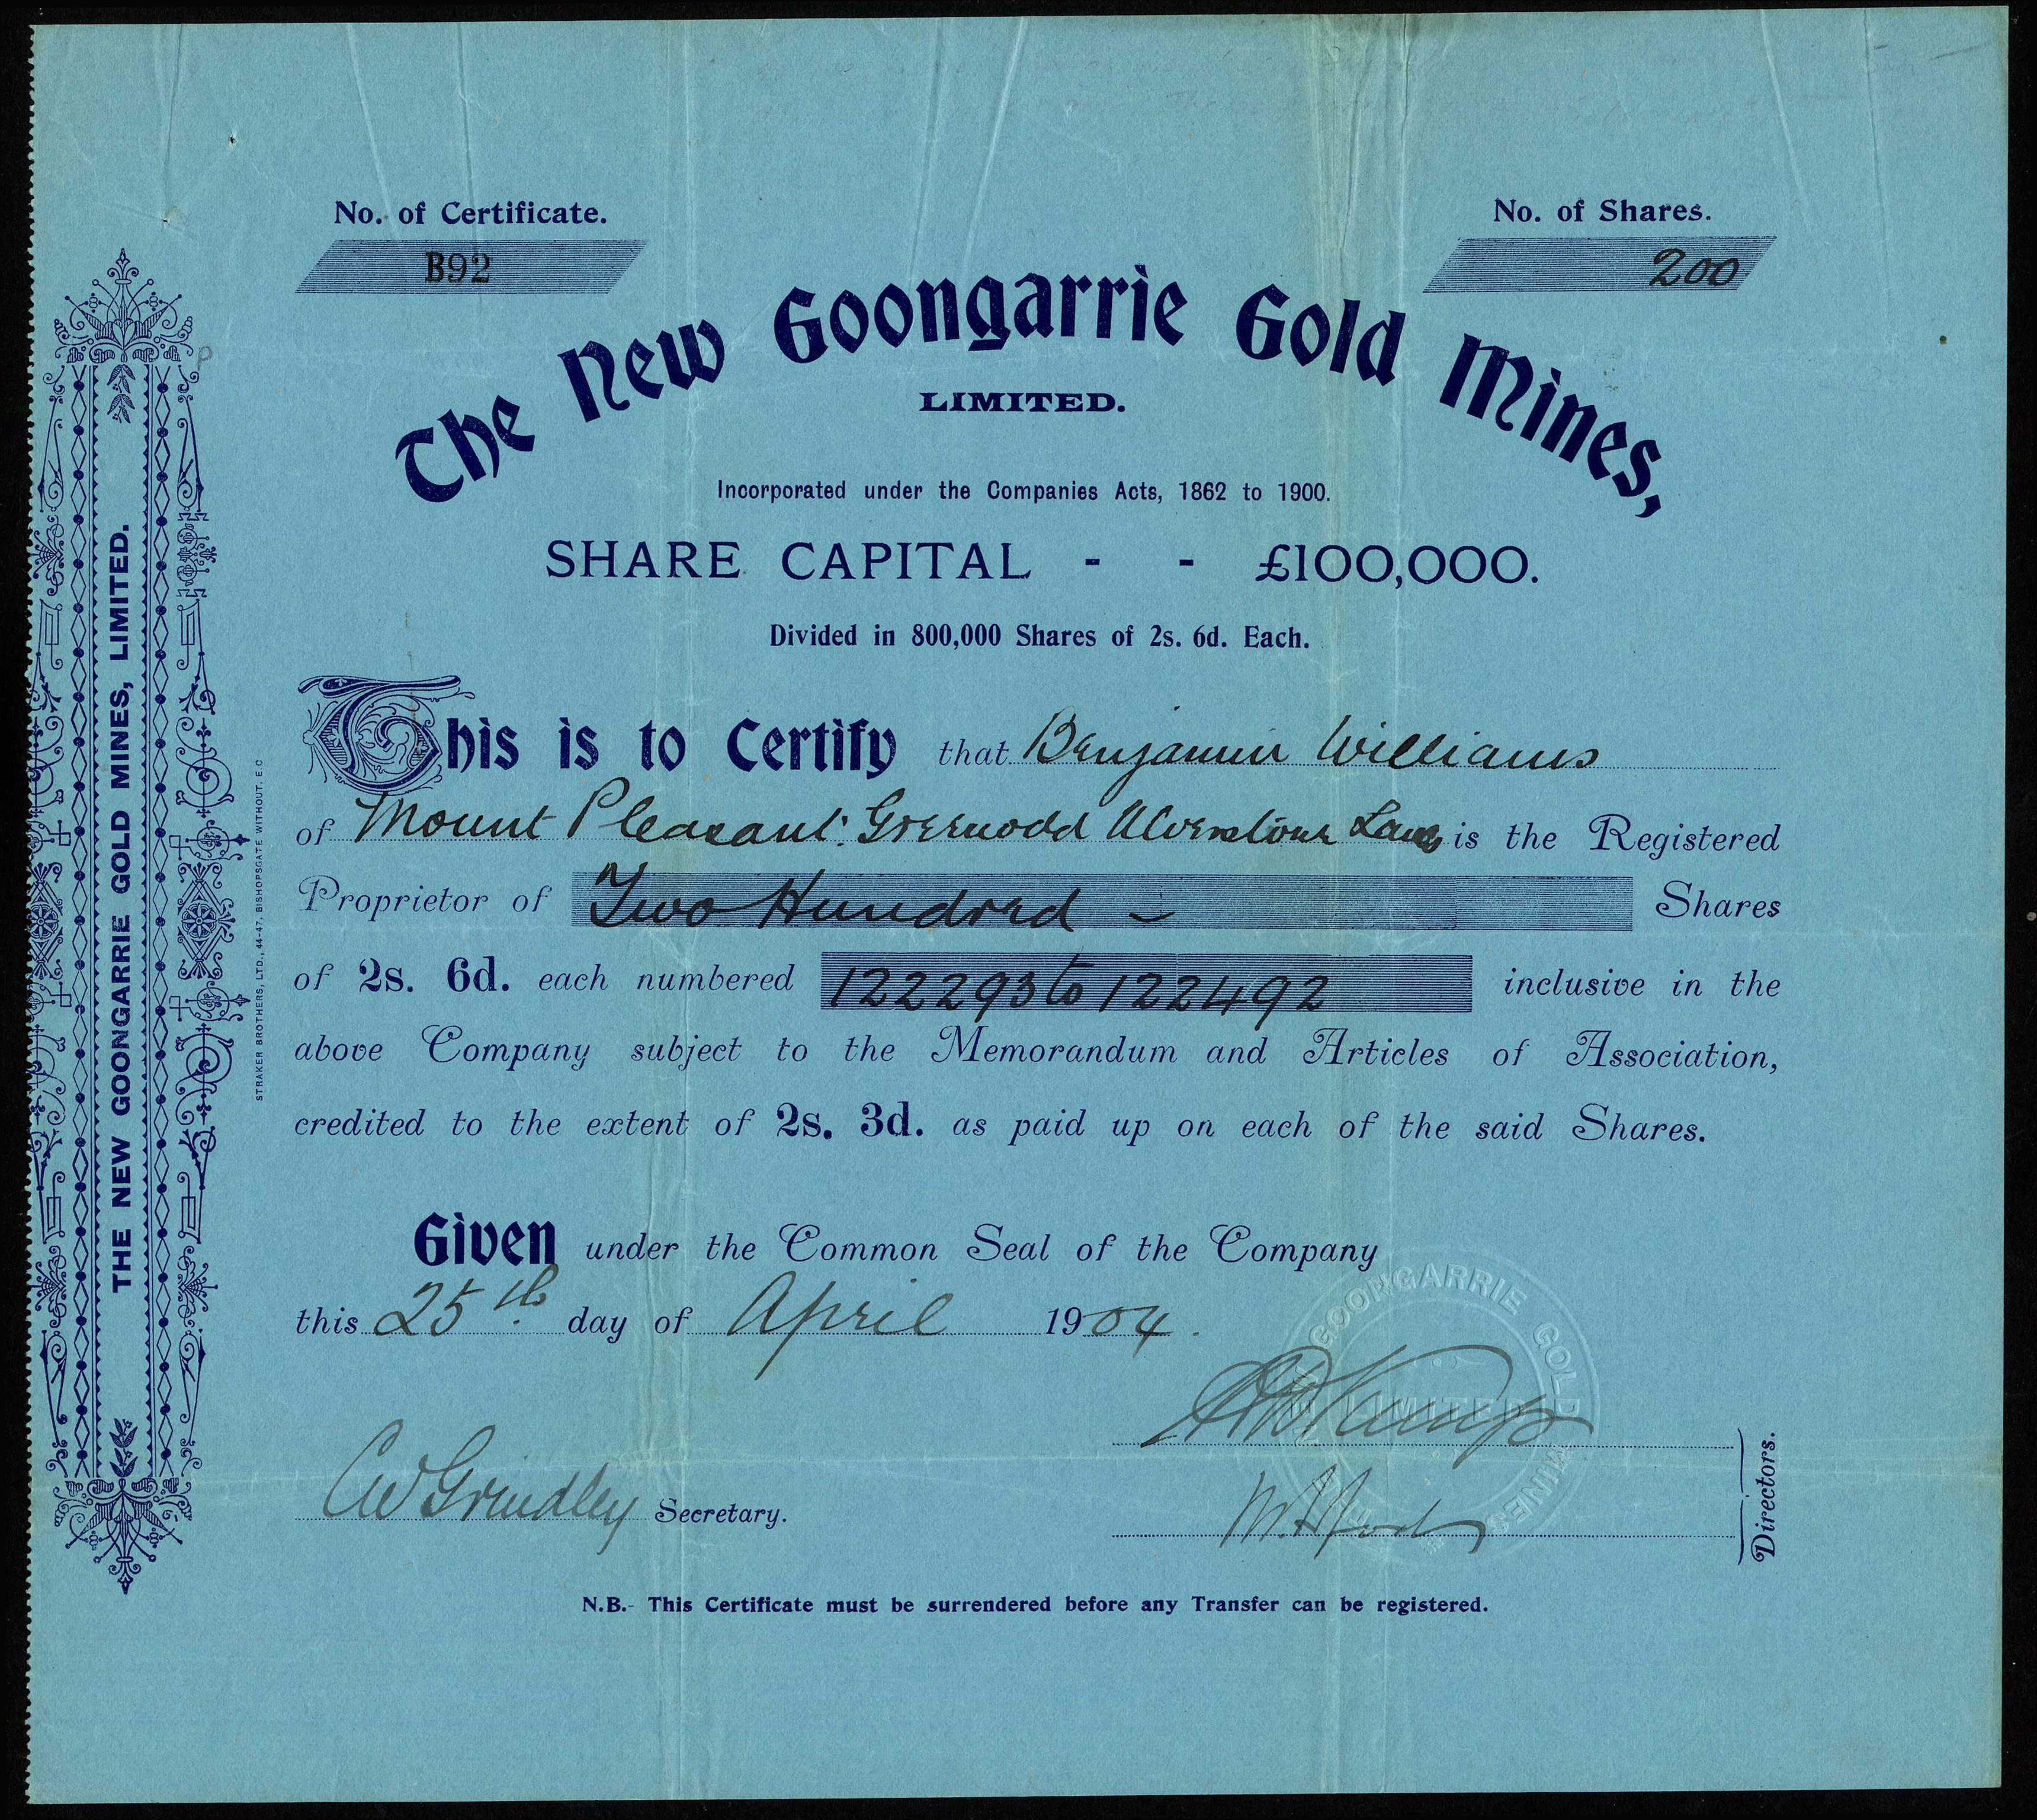 No. of Certificate.
B92
No. of Shares.
200
The New Goongarrie Gold Mines,
LIMITED.
Incorporated under the Companies Acts, 1862 to 1900.
SHARE CAPITAL - - £100,000.
Divided in 800,000 Shares of 2s. 6d. Each.
This is to Certify that Benjamin Williams
of Mount Pleasant Greenodd Ulverstone is the Registered
Proprietor of Two Hundred - Shares
of 2s. 6d. each numbered 122293 to 122492 inclusive in the
above Company subject to the Memorandum and Articles of Association,
credited to the extent of 2s. 3d. as paid up on each of the said Shares.
Given under the Common Seal of the Company
this 25th day of April 1904.
GOONGARRIE GOLD MINES
LIMITED
CW Grindley Secretary.
Directors.
N.B.- This Certificate must be surrendered before any Transfer can be registered.
THE NEW GOONGARRIE GOLD MINES, LIMITED.
STRAKER BROTHERS, LTD., 44-47, BISHOPSGATE WITHOUT. E.C